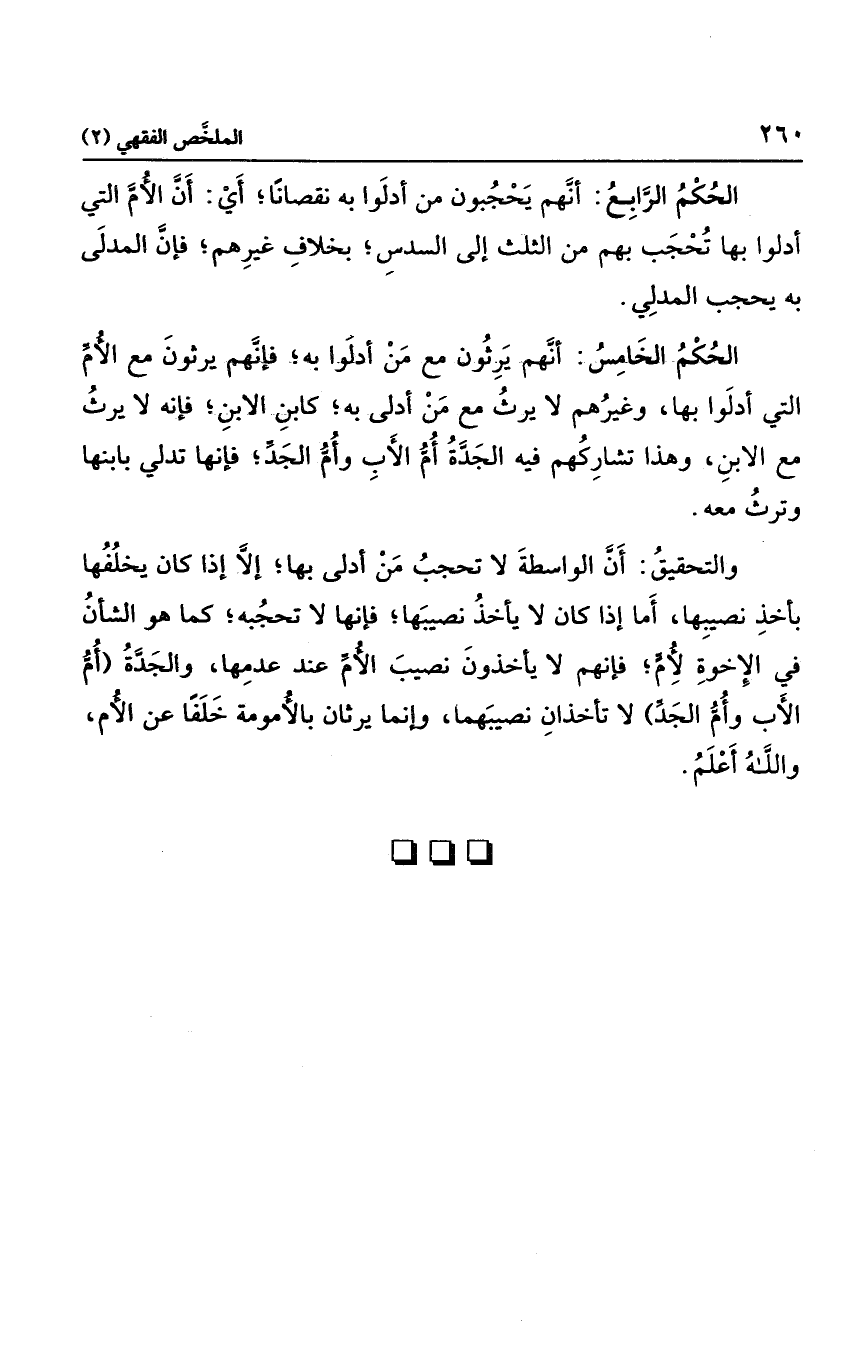 ٢٦٠ الملخَّص الفقهي (٢)
الحُكْمُ الرَّابِعُ: أنَّهم يَحْجُبون من أدلَوا به نقصانًا؛ أَيْ: أَنَّ الأُمَّ التي
أدلوا بها تُحْجَب بهم من الثلث إلى السدسِ؛ بخلافِ غيرِهم؛ فإنَّ المدلَى
به يحجب المدلِي.
الحُكْمُ الخَامِسُ: أنَّهم يَرِثُون مع مَنْ أدلَوا به؛ فإنَّهم يرثونَ مع الأُمِّ
التي أدلَوا بها، وغيرُهم لا يرثُ مع مَنْ أدلى به؛ كابنِ الابنِ؛ فإنه لا يرثُ
مع الابنِ، وهذا تشارِكُهم فيه الجَدَّةُ أُمُّ الأَبِ وأُمُّ الجَدِّ؛ فإنها تدلي بابنها
وترثُ معه.
والتحقيقُ: أَنَّ الواسطةَ لا تحجبُ مَنْ أدلى بها؛ إلَّا إذا كان يخلُفُها
بأخذِ نصيبِها، أَما إذا كان لا يأخذُ نصيبَها؛ فإنها لا تحجُبه؛ كما هو الشأنُ
في الإِخوةِ لِأُمٍّ؛ فإنهم لا يأخذونَ نصيبَ الأُمِّ عند عدمِها، والجَدَّةُ (أُمُّ
الأَب وأُمُّ الجَدِّ) لا تأخذانِ نصيبَهما، وإنما يرثان بالأُمومة خَلَفًا عن الأُم،
واللَّهُ أَعْلَمُ.